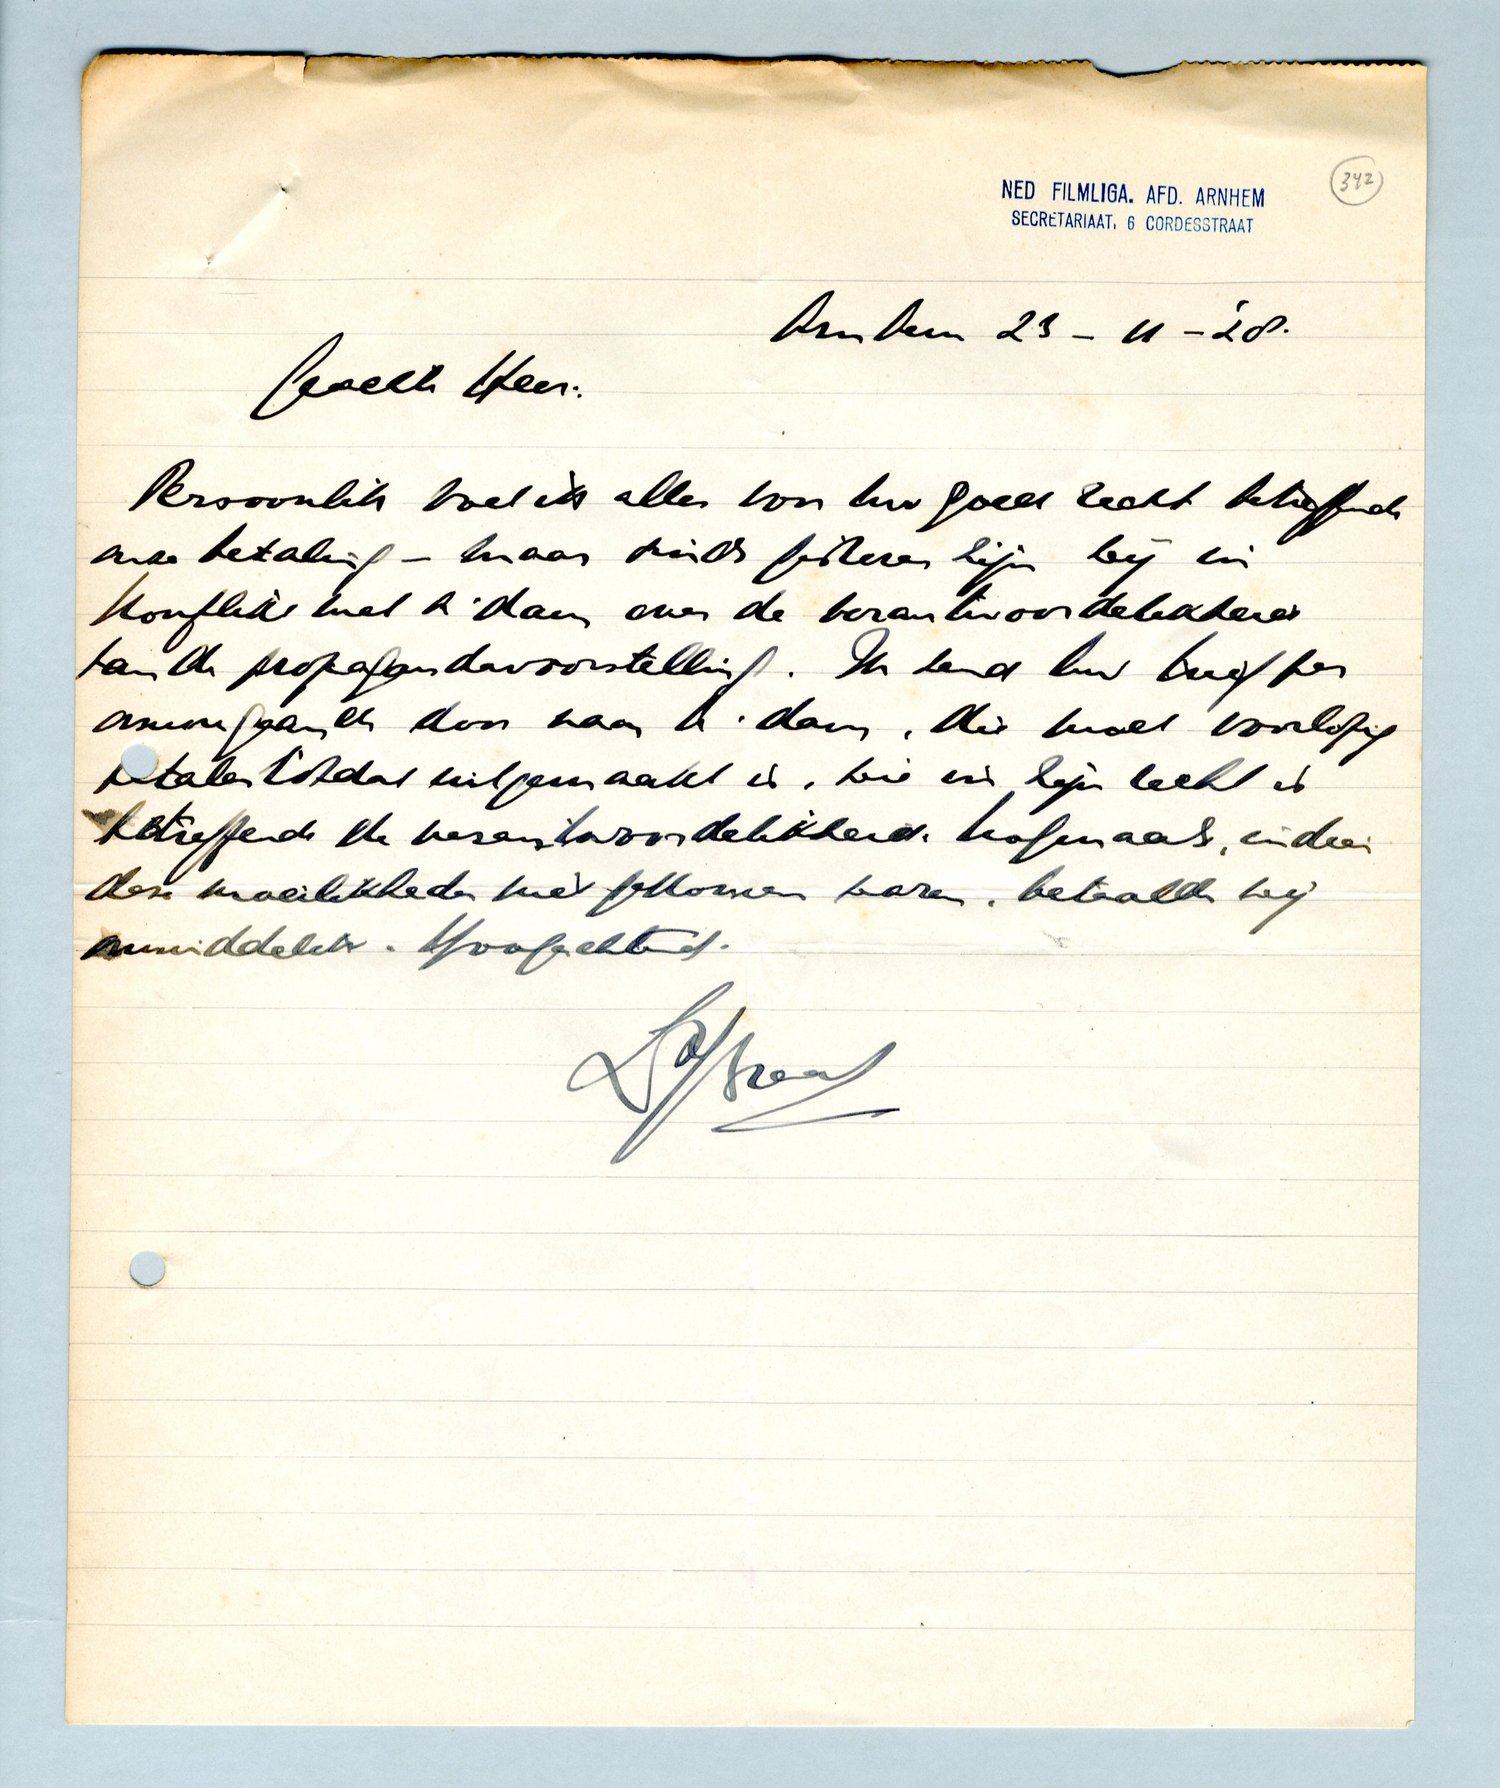 342
NED FILMLIGA. AFD. ARNHEM
SECRETARIAAT, 6 CORDESSTRAAT
Arnhem 23 - 11 - '28.
Geachte Heer.
Persoonlik voel ik alles voor Uw goed recht betreffende
onze betaling - maar sinds gisteren zijn wij in
konflikt met A'dam over de verantwoordelikheid
van de propagandavoorstelling. Ik zend Uw brief per
omgaande door naar A'dam, die moet voorlopig
betalen totdat uitgemaakt is, wie in zijn recht is
betreffende de verantwoordelikheid. Nogmaals, indien
deze moeilikheden niet gekomen waren, betaalde wij
onmiddelik. Hoogachtend.